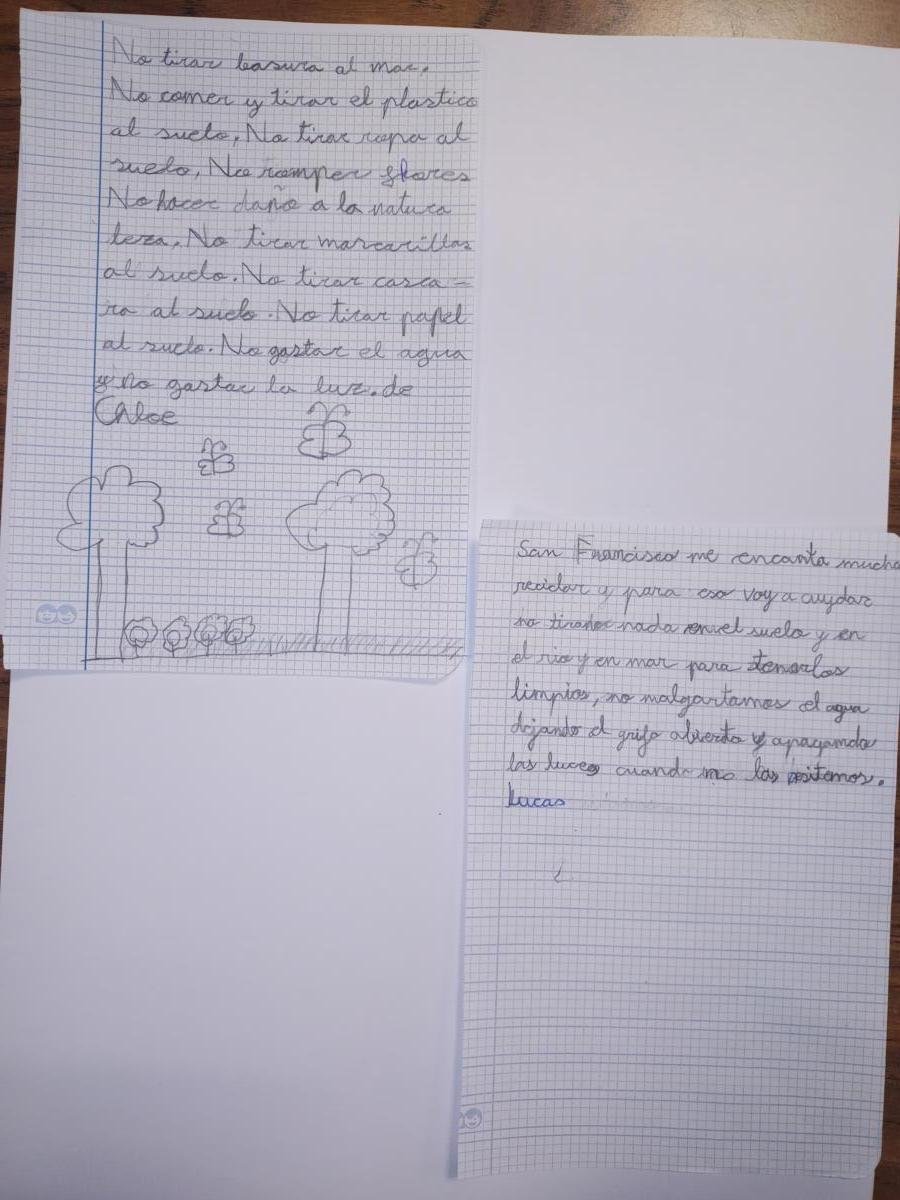 No tirar basura al mar.
No comer y tirar el plastico
al suelo, No tirar ropa al
suelo, No romper flores
No hacer daño a la natura
leza, No tirar mascarillas
al suelo. No tirar casca-
ra al suelo. No tirar papel
al suelo. No gastar el agua
y no gastar la luz. de
Chloe
San Francisco me encanta mucho
reciclar y para eso voy a cuydar
no tirando nada en el suelo y en
el rio y en mar para tenerlos
limpios, no malgartamos el agua
dejando el grifo abierto y apagando
las luces cuando no las
Lucas